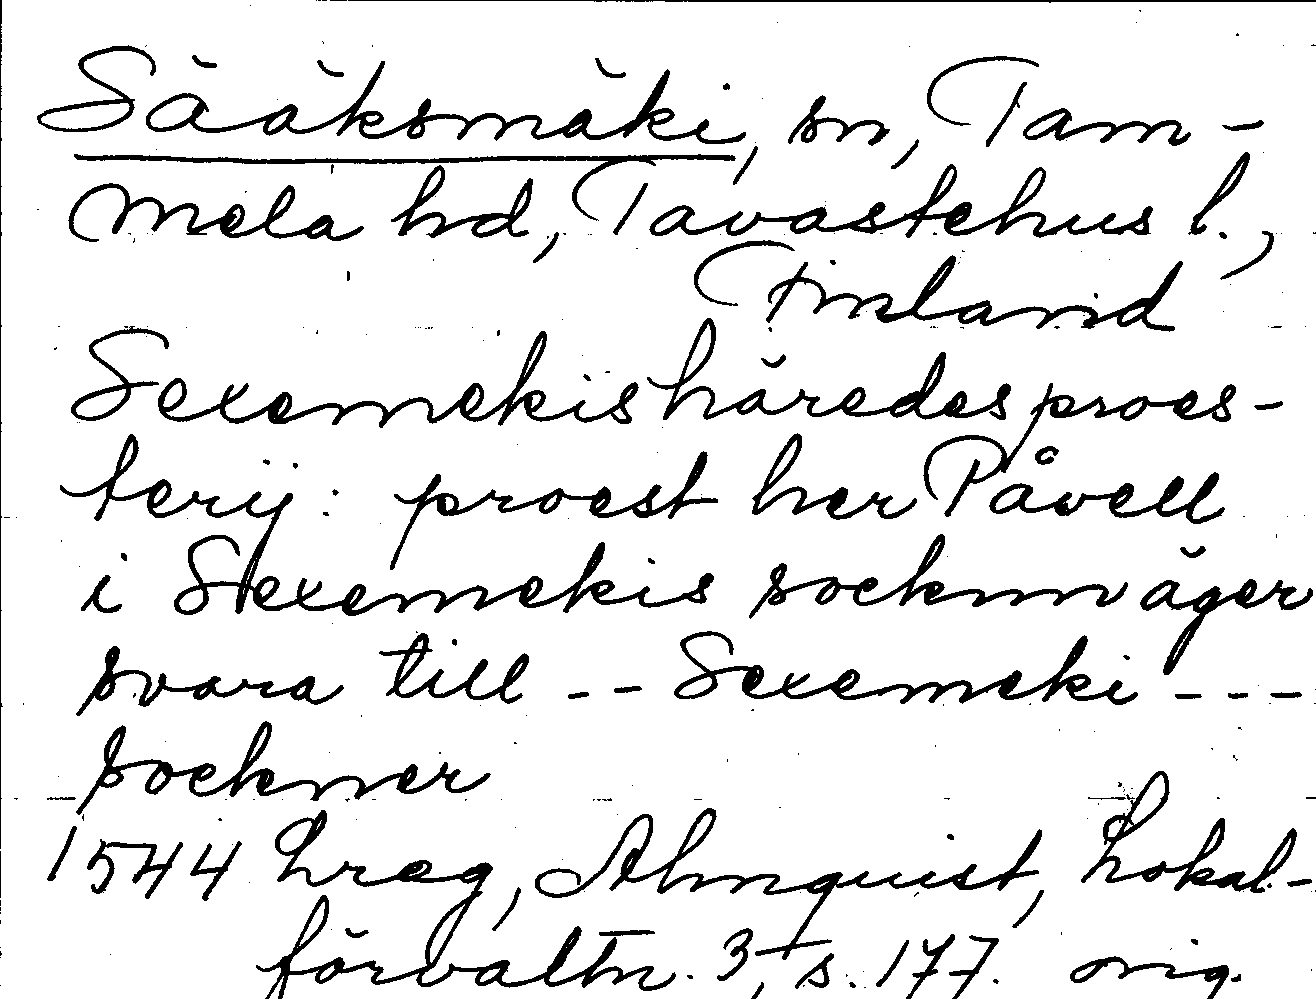 Sääksmäki, sn, Tam-
mela hd, Tavastehus l.,
Finland
Sexemekis häredes proes-
terij: proest her Påvell
i Sexemekis socknn äger
svara till -- Sexemeki ---
sockner
1544 Lreg, Almquist, Lokal-
förvaltn. 3, s. 177. orig.